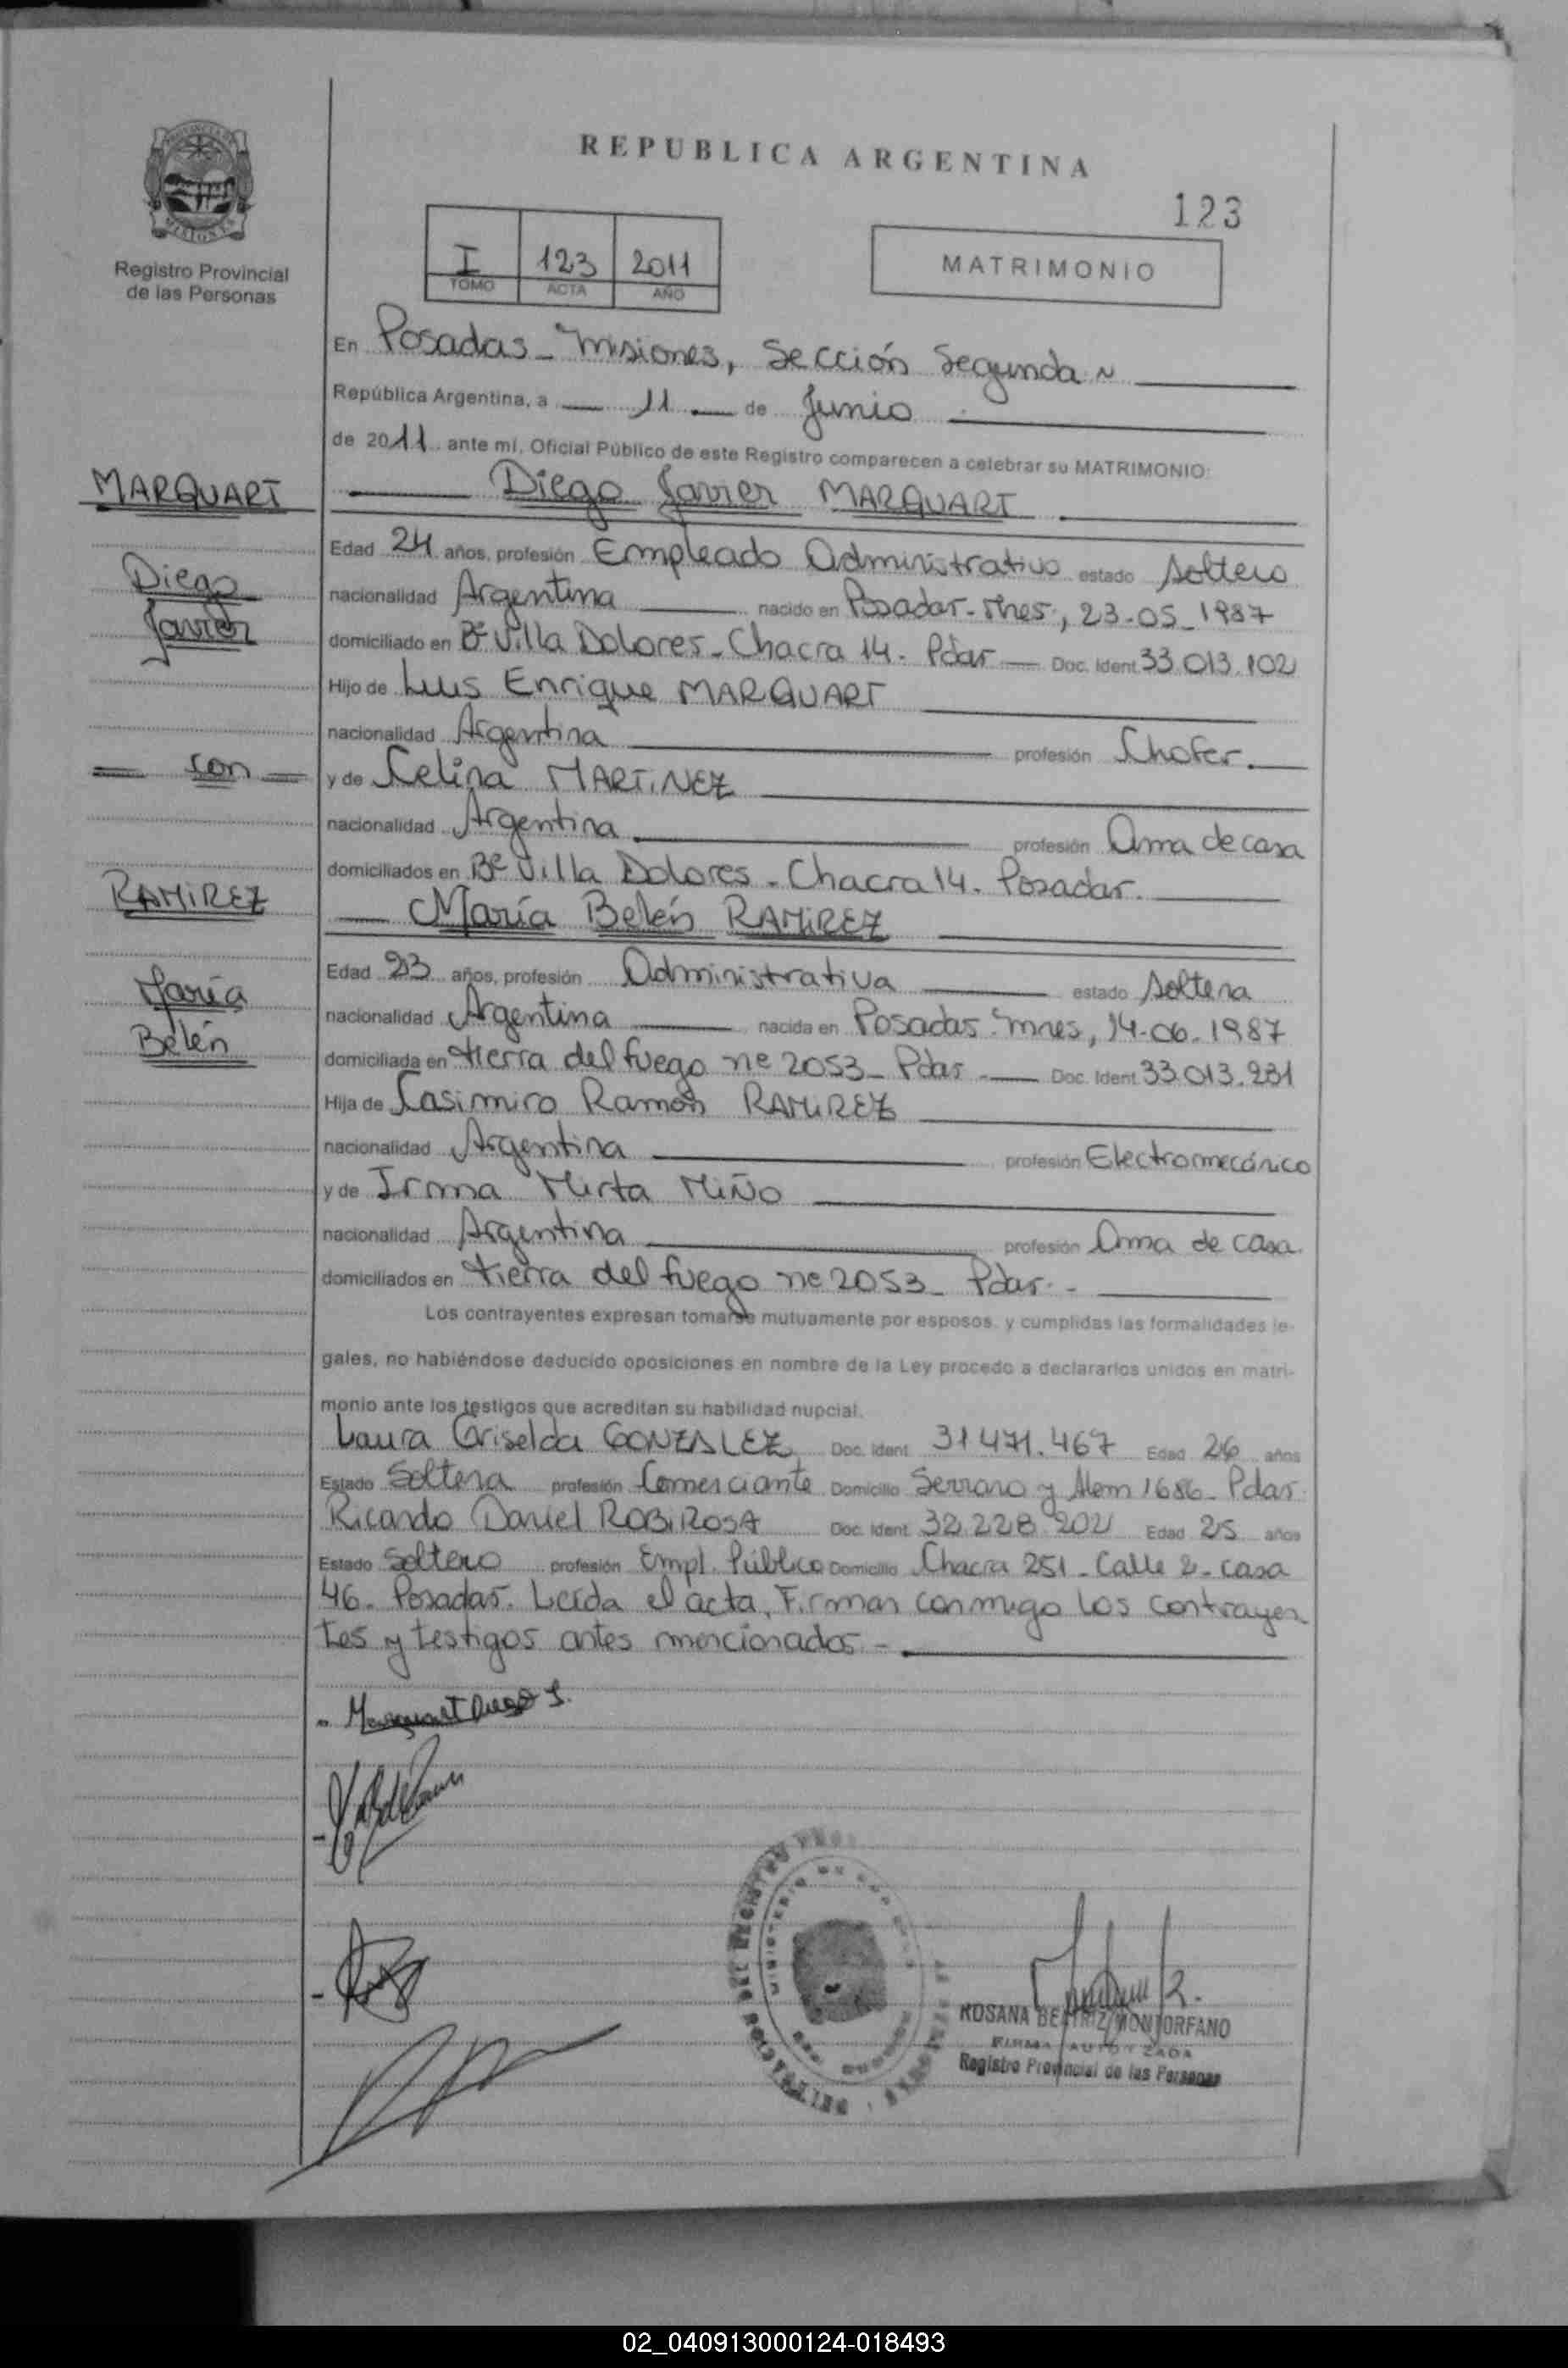 REPUBLICA ARGENTINA
123
PROVINCIA DE
MISIONES
Registro Provincial
de las Personas
I 123 2011
TOMO ACTA AÑO
MATRIMONIO
En Posadas - Misiones, Sección Segunda
República Argentina, a 11 de Junio
de 2011 ante mí, Oficial Público de este Registro comparecen a celebrar su MATRIMONIO:
MARQUART
Diego Javier MARQUART
Edad 24 años, profesión Empleado Administrativo estado soltero
Diego
Javier
nacionalidad Argentina nacido en Posadas-Mnes, 23-05-1987
domiciliado en Bº Villa Dolores - Chacra 14. Pdas Doc. Ident. 33.013.102
Hijo de Luis Enrique MARQUART
nacionalidad Argentina profesión Chofer.
con
y de Celina MARTINEZ
nacionalidad Argentina profesión Ama de casa
domiciliados en Bº Villa Dolores - Chacra 14. Posadas.
RAMIREZ
María Belén RAMIREZ
Edad 23 años, profesión Administrativa estado soltera
María
Belén
nacionalidad Argentina nacida en Posadas-Mnes, 14-06-1987
domiciliada en tierra del fuego nº 2053 - Pdas - Doc. Ident. 33.013.231
Hija de Casimiro Ramón RAMIREZ
nacionalidad Argentina profesión Electromecánico
y de Irma Mirta MIÑO
nacionalidad Argentina profesión Ama de casa.
domiciliados en tierra del fuego nº 2053 - Pdas. -
Los contrayentes expresan tomarse mutuamente por esposos, y cumplidas las formalidades le-
gales, no habiéndose deducido oposiciones en nombre de la Ley procedo a declararlos unidos en matri-
monio ante los testigos que acreditan su habilidad nupcial.
Laura Griselda GONZALEZ Doc. Ident. 31471.467 Edad 26 años
Estado Soltera profesión Comerciante Domicilio Serrano y Alem 1686 - Pdas.
Ricardo Daniel ROBIROSA Doc. Ident. 32.228.202 Edad 25 años
Estado Soltero profesión Empl. Público Domicilio Chacra 251 - Calle 2 - casa
46. Posadas. Leída el acta, Firman conmigo los contrayen
tes y testigos antes mencionados -
Marquart Diego J.
ROSANA BEATRIZ MONTORFANO
FIRMA AUTORIZADA
Registro Provincial de las Personas
02_040913000124-018493